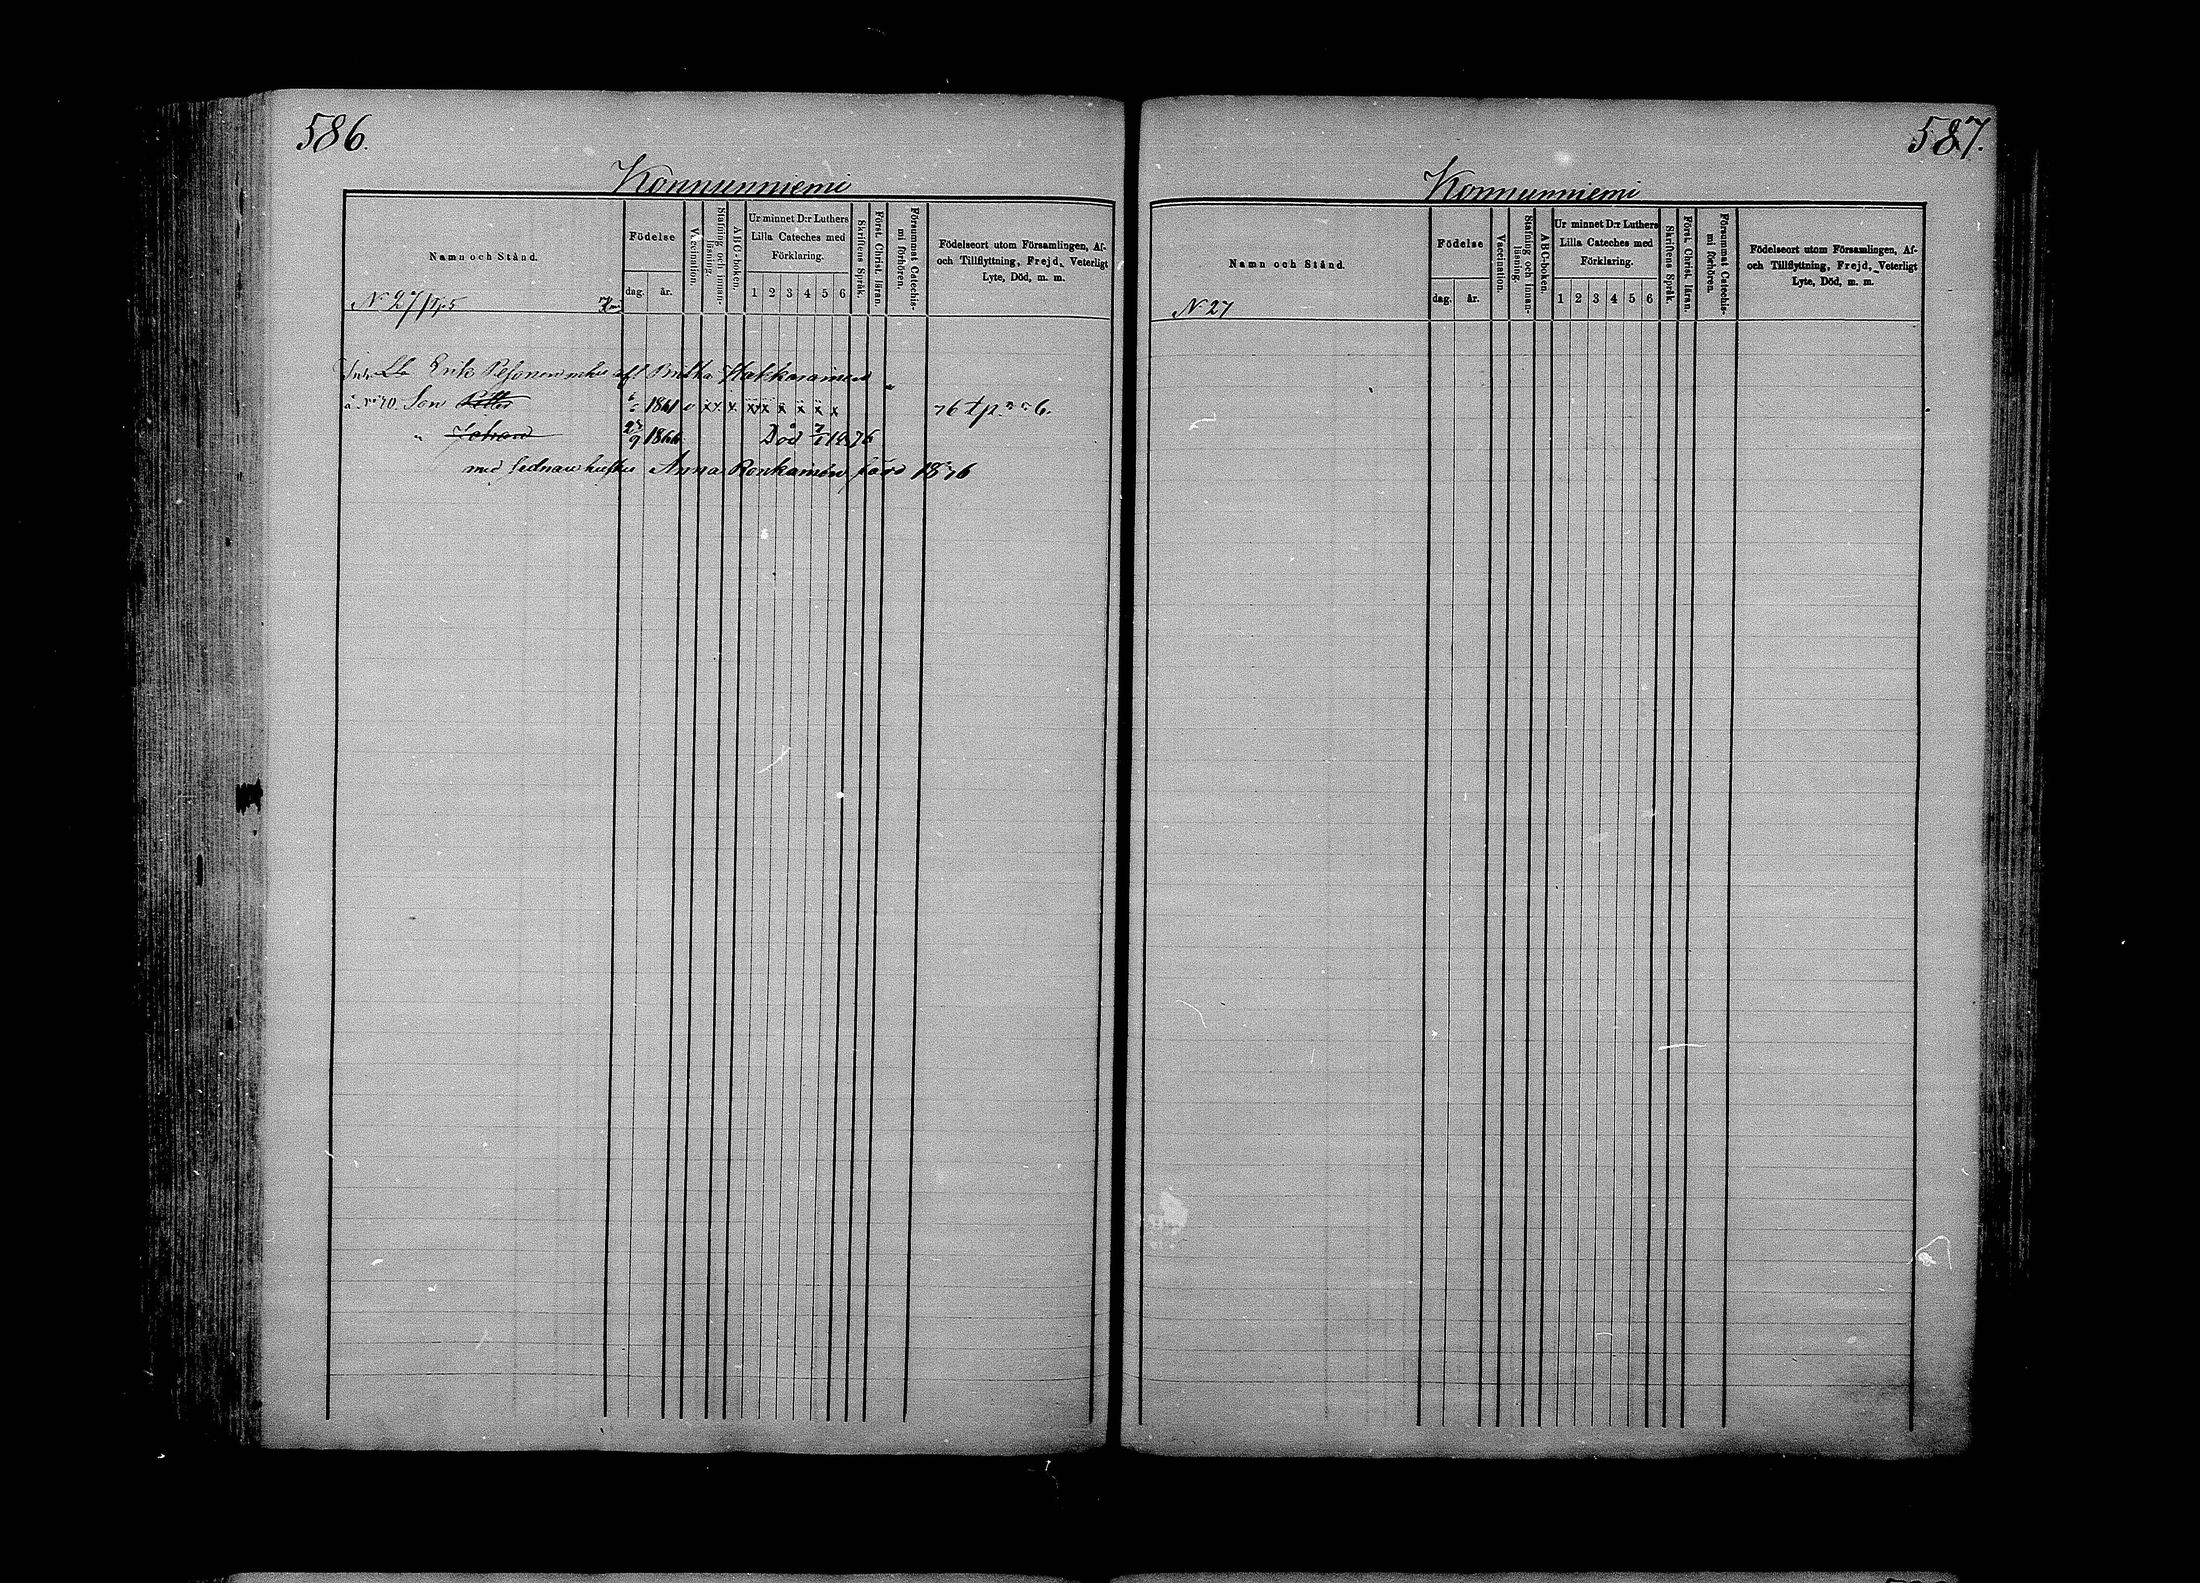 586.
Konnunniemi
Namn och Stånd.
Födelse
dag. år.
Vaccination.
Stafning och innan-
läsning.
ABC-boken.
Ur minnet D:r Luthers
Lilla Cateches med
Förklaring.
1 2 3 4 5 6
Skriftens Språk.
Först. Christ. läran.
Försummat Catechis-
mi förhören.
Födelseort utom Församlingen, Af-
och Tillflyttning, Frejd, Veterligt
Lyte, Död, m. m.
N 27
Erik Pesonen Hakkarainen
Son Petter 1861 v x x x x x x x x x
" Johan 23/9 1866 Död 1876
med sednare hustru Anna Ronkainen 1876
587.
Konnunniemi
Namn och Stånd.
Födelse
dag. år.
Vaccination.
Stafning och innan-
läsning.
ABC-boken.
Ur minnet D:r Luthers
Lilla Cateches med
Förklaring.
1 2 3 4 5 6
Skriftens Språk.
Först. Christ. läran.
Försummat Catechis-
mi förhören.
Födelseort utom Församlingen, Af-
och Tillflyttning, Frejd, Veterligt
Lyte, Död, m. m.
N 27